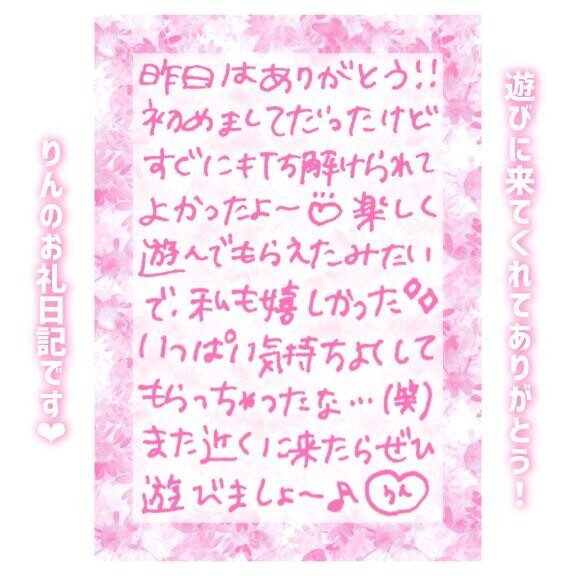 遊びに来てくれてありがとう!
昨日はありがとう!!
初めましてだったけど
すぐに打ち解けられて
よかったよ〜♡楽しく
遊んでもらえたみたい
で、私も嬉しかった◇◇
いっぱい気持ちよくして
もらっちゃったな…(笑)
また近くに来たらぜひ
遊びましょ〜♪りん
りんのお礼日記です❤